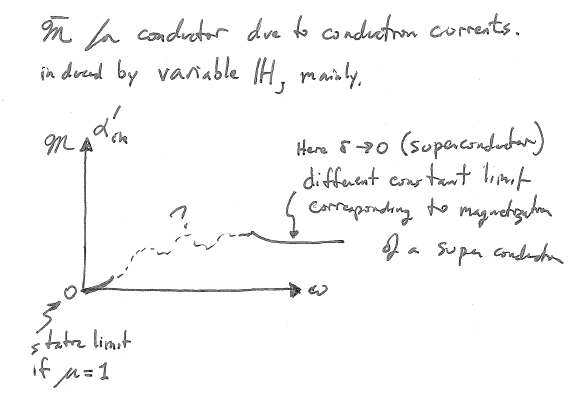 m̄ for conductor due to conduction currents.
induced by variable H, mainly.
m α'ik
Here δ→0 (superconductor)
different constant limit
corresponding to magnetization
of a super conductor
?
0
ω
static limit
if μ=1